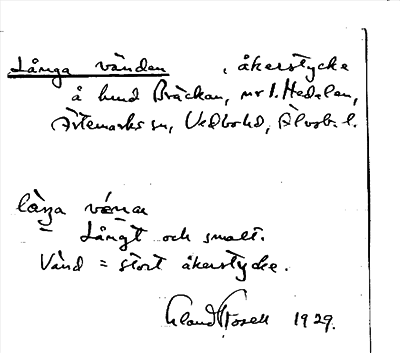 Långa vänden, åkerstycke
å hmd Bräckan, nr 1. Hedalen,
Ärtemarks sn, Vedbo hd, Älvsb. l.
långa vänna
Långt och smalt.
Vänd = stort åkerstycke.
1929.